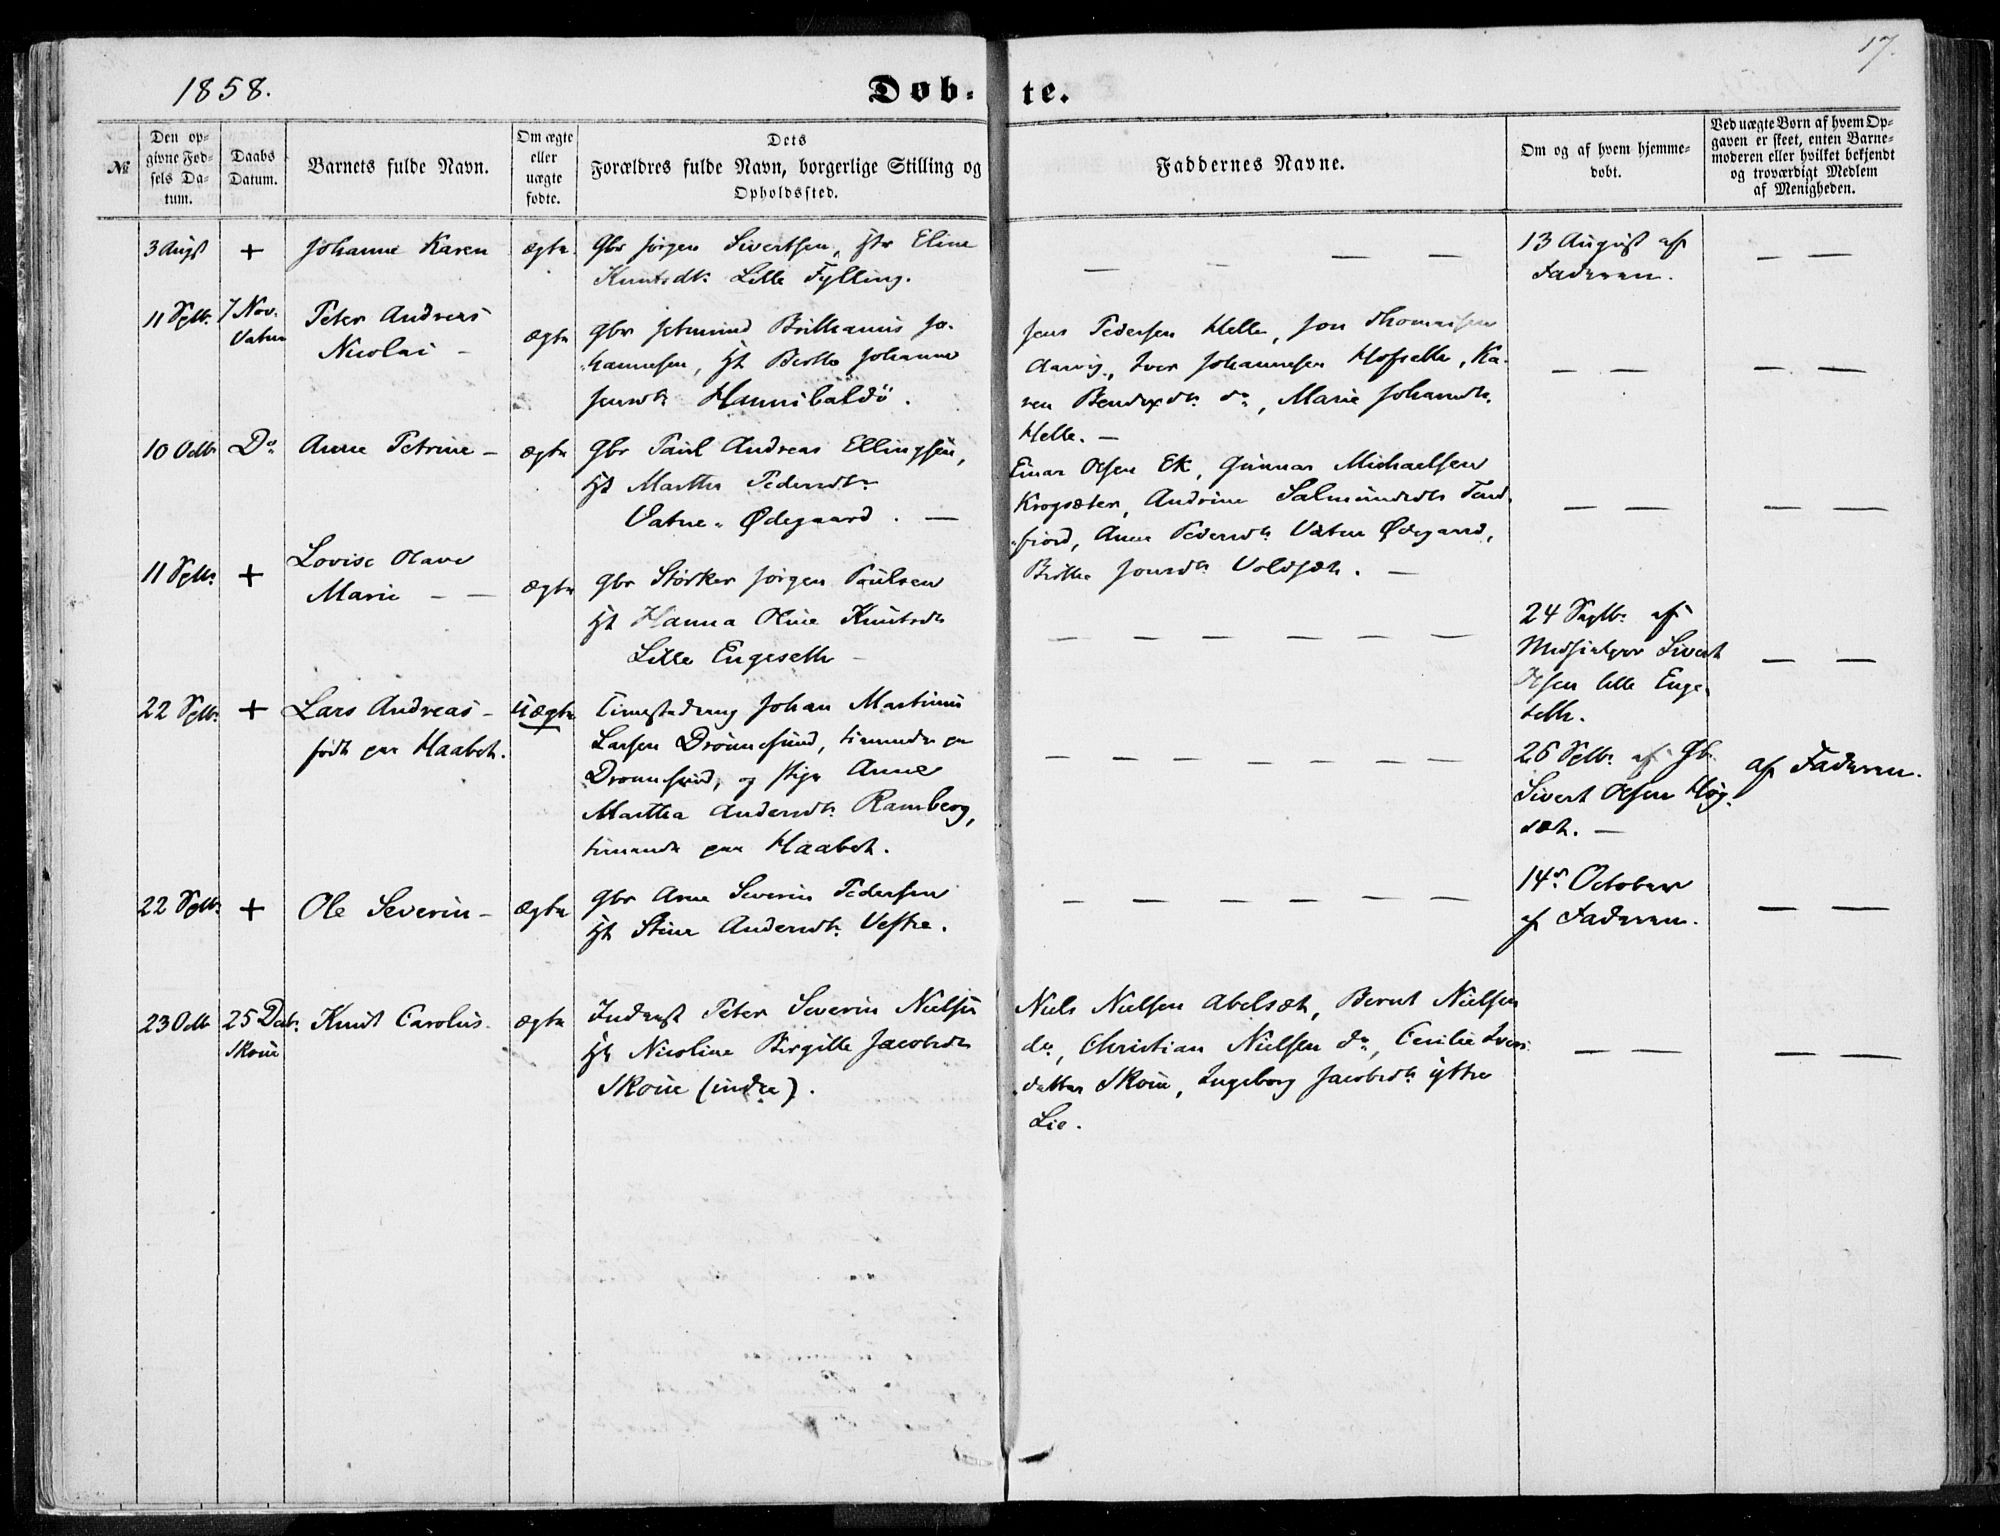 1858.
Døb-te.
17.
№
Den op-
givne Fød-
sels Da-
tum.
Daabs
Datum.
Barnets fulde Navn.
Om ægte
eller
uægte
fødte.
Dets
Forældres fulde Navn, borgerlige Stilling og
Opholdssted.
Faddernes Navne.
Om og af hvem hjemme-
døbt.
Ved uægte Børn af hvem Op-
gaven er skeet, enten Barne-
moderen eller hvilket bekjendt
og troværdigt Medlem
af Menigheden.
3 Augst + Johanne Karen ægte
Gbr Jørgen Sivertsen, Eline
Knutsdtr Lille Fylling.
— — — —
13 August af
Faderen.
— —
11 Sptbr. 7 Nov.
Vatne
Peter Andreas
Nicolai –
ægte
Gbr Jetmund Johannesen, Hst Berthe
Hannibalsö.
Jens Pedersen Helle, Jon Thomassen
Iver Johannesen Hofseth, Ka-
ren do, Marie
Helle. —
— —
— —
10 Octb Do Anne Petrine – ægte
Gbr Paul Andreas Ellingsen,
Hst Marthe Pedersdtr
Vatne-Ødegaard. —
Einar Olsen Ek, Gunnar Michaelsen
Krogsæter, Andrine Salmundsdtr Tend-
fiord, Anne Pedersdtr Vatne Ødegaard,
Brithe Jonsdtr Voldsæt. —
— —
— —
11 Sptbr + Lovise Olave
Marie – –
ægte
Gbr Størker Jørgen Paulsen
Hst Hanna Oline Knutsdtr
Lille Engeseth –
— — — — — —
24 Septbr. af
Medhjelper Sivert
Olsen lille Enge-
seth.
— —
22 Sptbr. + Lars Andreas –
født paa Haabet.
Uægte
Johan Martinus
Larsen Drønnesund, tienende paa
Drønnesund, og Pige Anne
Marthe Andersdtr. Ramberg,
tienende paa Haabet.
— — — — — —
26 Sptbr. af Gbr
Sivert Olsen Høg-
sæt. —
af Faderen.
22 Sptbr. + Ole Severin – ægte
Gbr Arne Severin Pedersen
Hst Stine Andersdtr. Vestre.
— — — — — —
14de October
af Faderen.
— —
23 Octb 25 Decb.
Skoue
Knud Carolus. ægte
Inderst Peter Severin Nielsen
Hst Nicoline Birgitte Jacobsdtr
Skoue (indre).
Niels Nielsen Abelsæt, Bernt Nielsen
do, Christian Nielsen do, Cecilie Ivers-
datter Skoue, Ingeborg Jacobsdtr yttre
Lie.
— —
— —